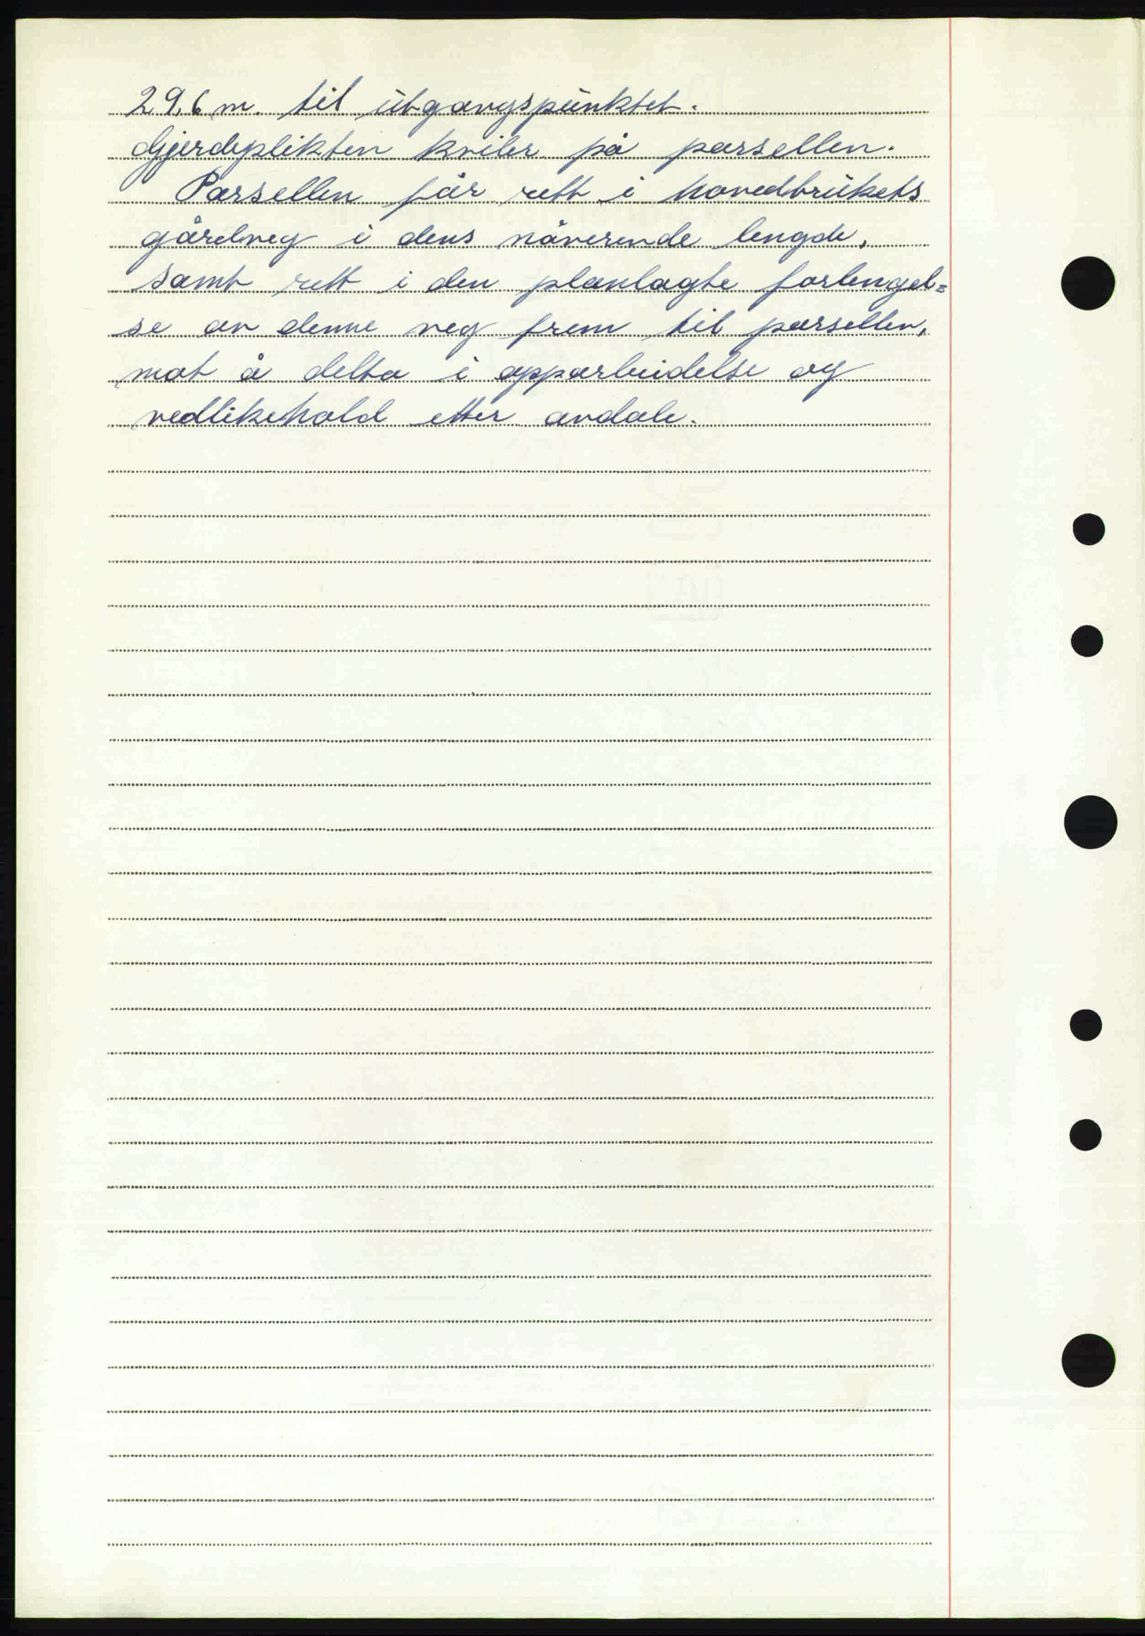 29,6 m. til utgangspunktet.
Gjerdeplikten kviler på parsellen.
Parsellen får rett i hovedbrukets
gårdsveg i dens nåverende lengde,
samt rett i den planlagte forlengel=
se av denne veg frem til parsellen,
mot å delta i opparbeidelse og
vedlikehold etter avdale.